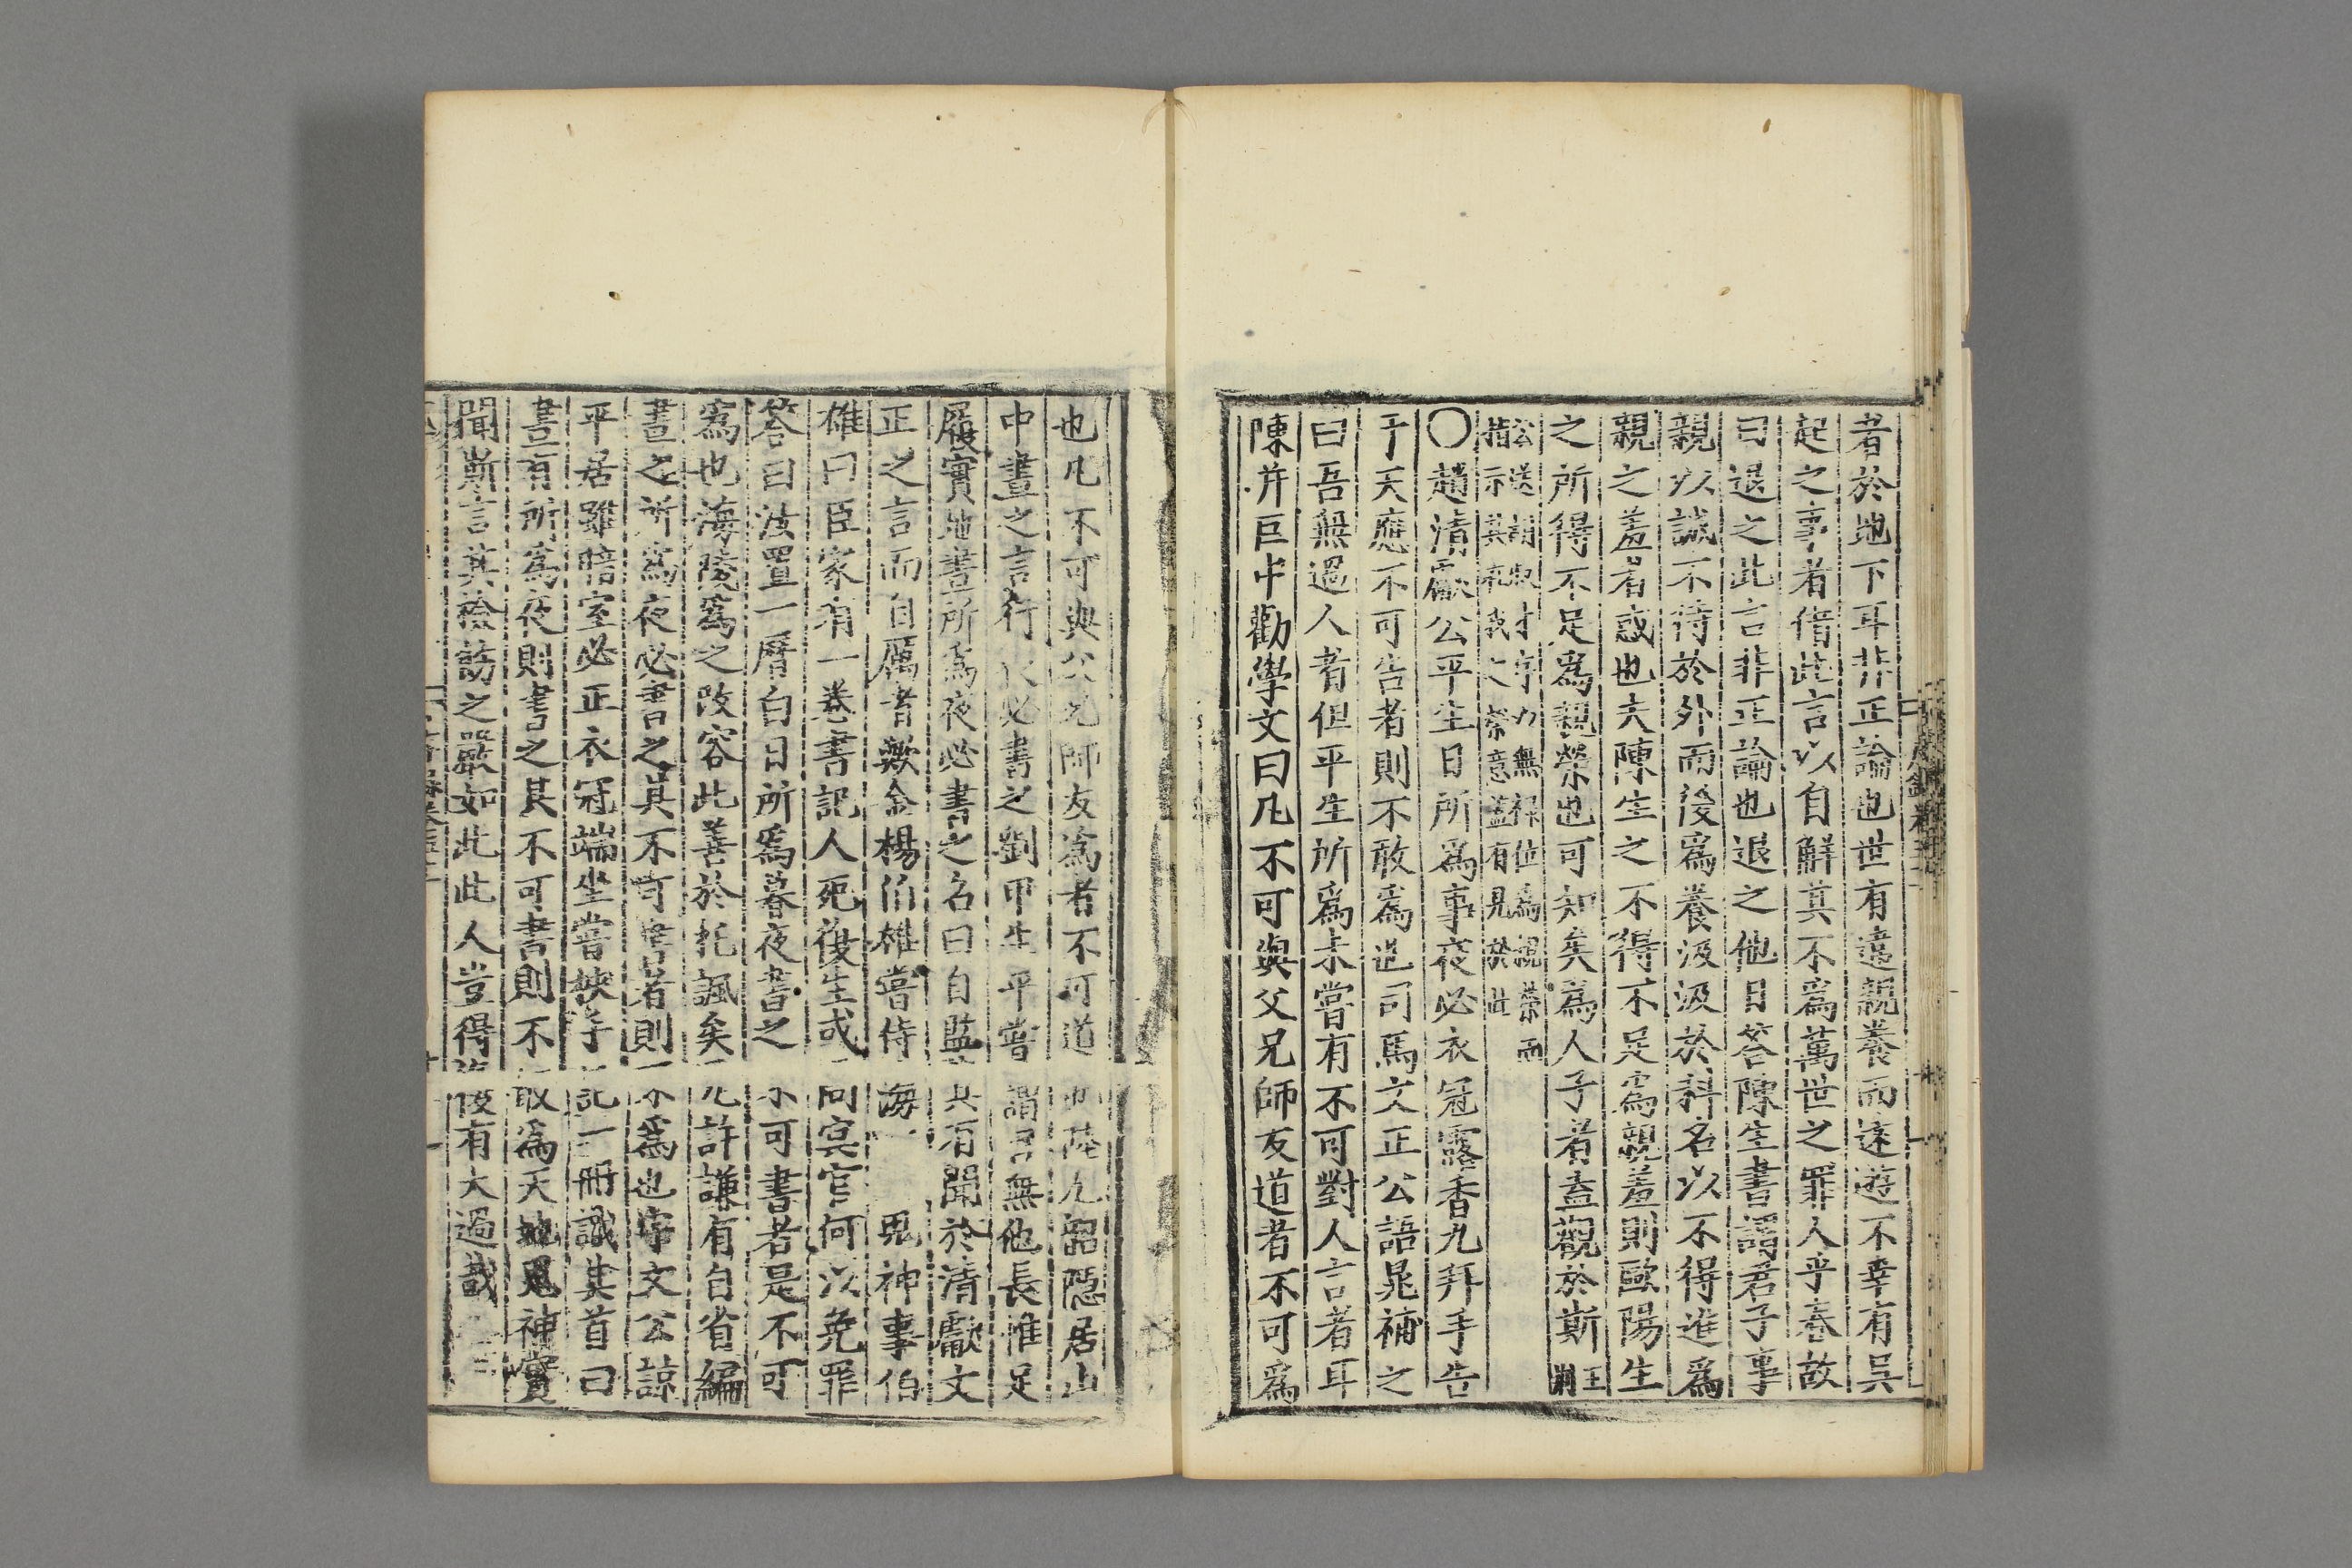 者於地下耳非正論也世有違親養而遠遊不幸有吳
起之事者借此言以自解其不爲萬世之罪人乎春故
曰退之此言非正論也退之他日答陳生書謂君子事
親以誠不待於外而後爲養汲汲於科名以不得進爲
親之羞者惑也夫陳生之不得不足爲親羞則歐陽生
之所得不足爲親榮也可知矣爲人子者盍觀於斯王荊
公送胡叔才序力無祿位爲親榮而
指示其之榮意蓋有見於此
〇趙清獻公平生日所爲事夜必衣冠露香九拜手告
于天應不可告者則不敢爲也司馬文正公語晁補之
曰吾無過人者但平生所爲未嘗有不可對人言者耳
陳井巨中勸學文曰凡不可與父兄師友道者不可爲
也凡不可與父兄師友爲者不可道也陸九韶隱居山
中晝之言行夜必書之劉甲生平嘗謂吾無他長惟足
履實地晝所爲夜必書之名曰自監其有聞於清獻文
正之言而自厲者歟金楊伯雄嘗侍海鬼神事伯
雄曰臣家有一卷書記人死復生或問冥官何以免罪
答曰汝置一曆白日所爲暮夜書之不可書者是不可
爲也海陵爲之改容此善於托諷矣元許謙有自省編
晝之所爲夜必書之其不可書者則不爲也字文公諒
平居雖暗室必正衣冠端坐嘗挾手記一冊識其首曰
晝有所爲夜則書之其不可書則不敢爲天地鬼神實
聞斯言其檢飭之嚴如此此人豈得復有大過哉